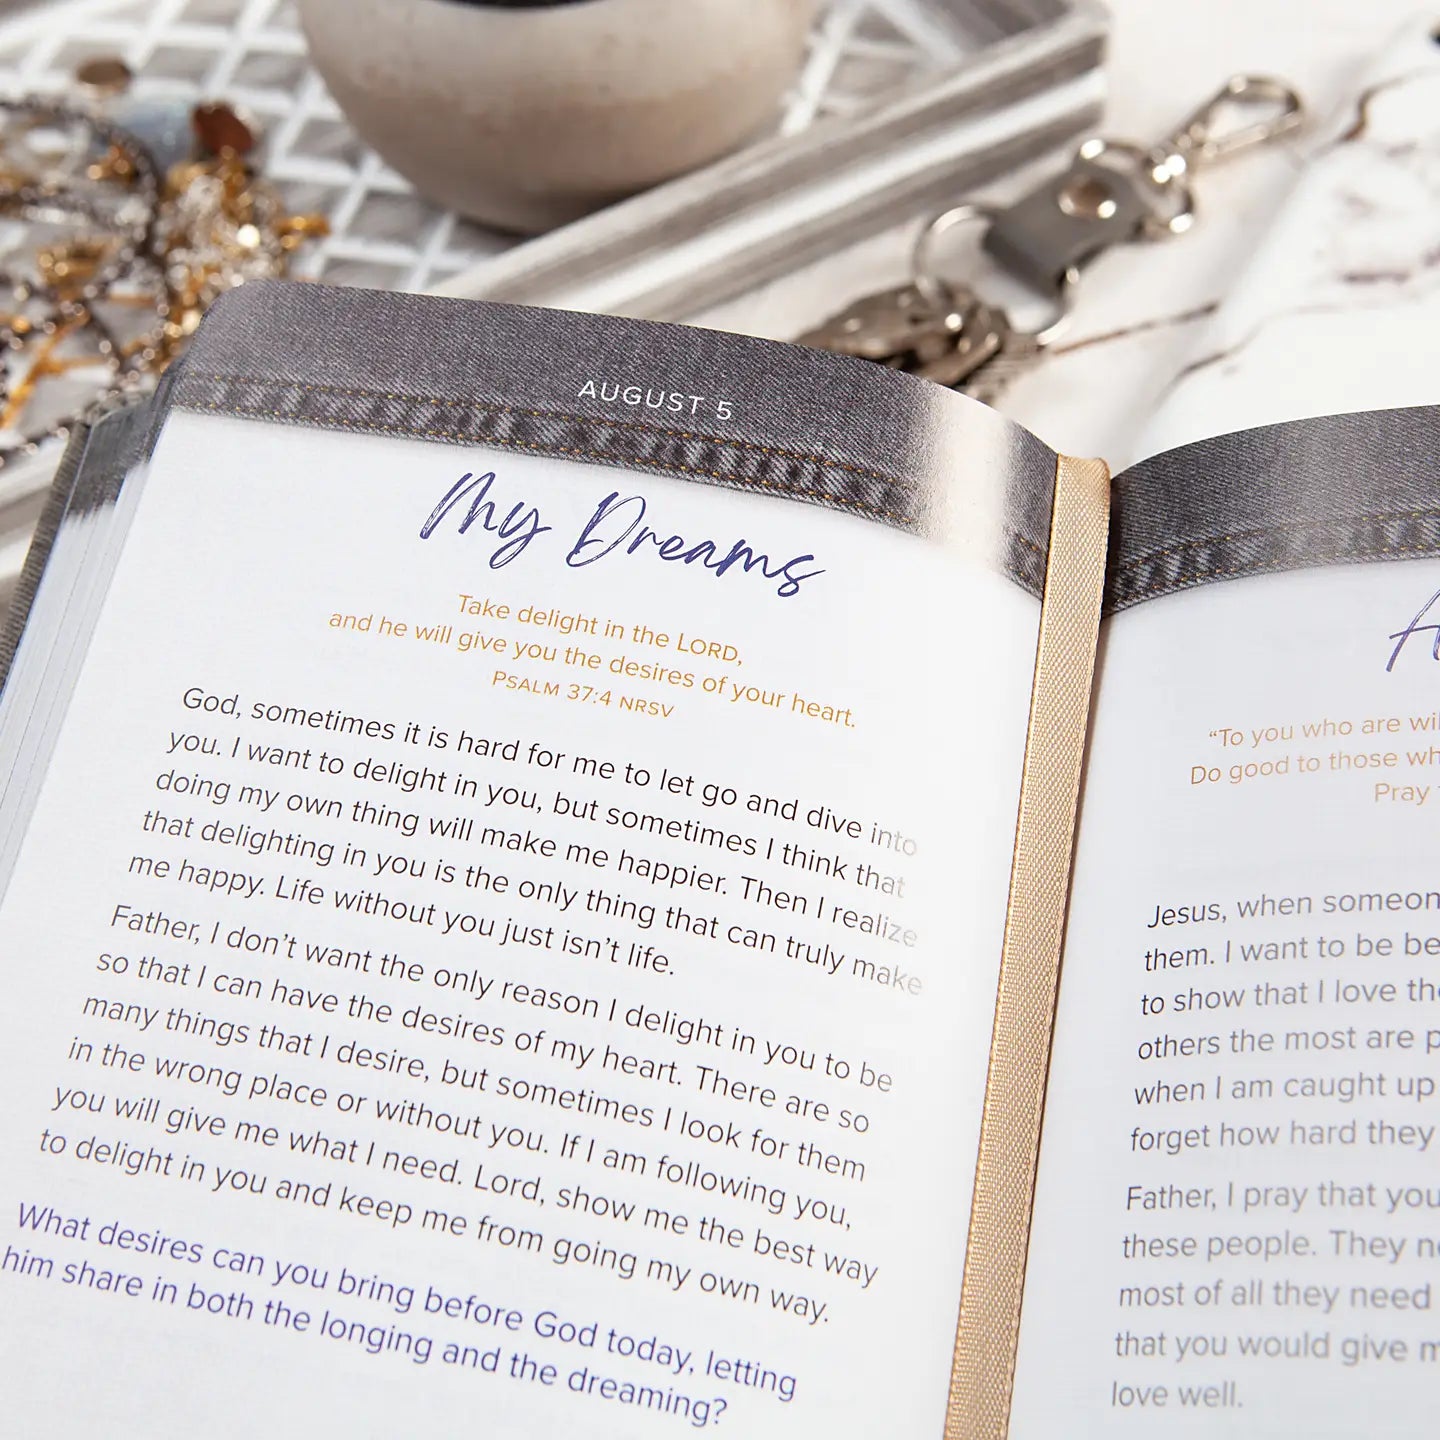 AUGUST 5
My Dreams
Take delight in the LORD,
and he will give you the desires of your heart.
PSALM 37:4 NRSV
God, sometimes it is hard for me to let go and dive into
you. I want to delight in you, but sometimes I think that
doing my own thing will make me happier. Then I realize
that delighting in you is the only thing that can truly make
me happy. Life without you just isn't life.
Father, I don't want the only reason I delight in you to be
so that I can have the desires of my heart. There are so
many things that I desire, but sometimes I look for them
in the wrong place or without you. If I am following you,
you will give me what I need. Lord, show me the best way
to delight in you and keep me from going my own way.
What desires can you bring before God today, letting
him share in both the longing and the dreaming?
"To you who are
Do good to those
Pray
Jesus, when
them. I want to be
to show that I love
others the most are
when I am caught up
forget how hard they
Father, I pray that
these people. They
most of all they need
that you would give
love well.